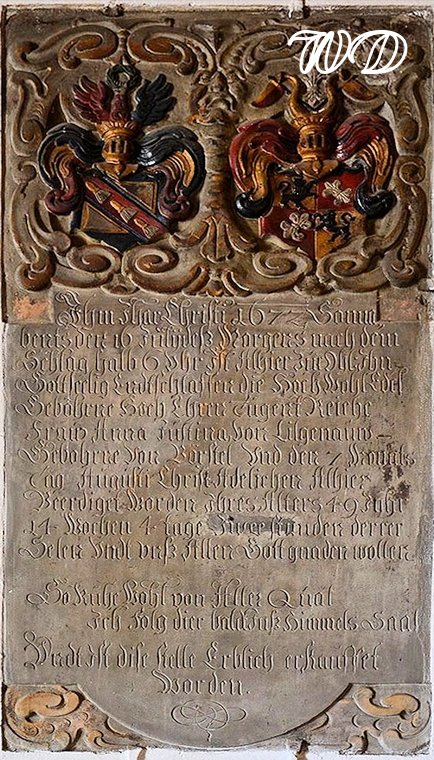 WD
Ihm Jhar Christi 1677 Sonna
bents den 16 July deß Morgens nach dem
Schlag halb 6 Uhr Ist Alhier zu
Gottseelig Endtschlaffen die Hoch Wohl Edel
Gebohrne Hoch Ehren Tugent Reiche
Fraw Anna Justina von Lilgenauw
Gebohrne von Borstel Vnd den 7 Monats
Tag Augusti Christ Adelichen Alhier
Beerdiget Worden Ihres Alters 49 Jhar
14 Wochen 4 tage Stunden derrer
Selen Vndt vnß Allen Gott gnaden wolle
So Ruhe Wohl von Aller Qual
Ich folg dier bald Inß Himmels Saal
Vndt Ist dise stelle Erblich erkauffet
Worden.